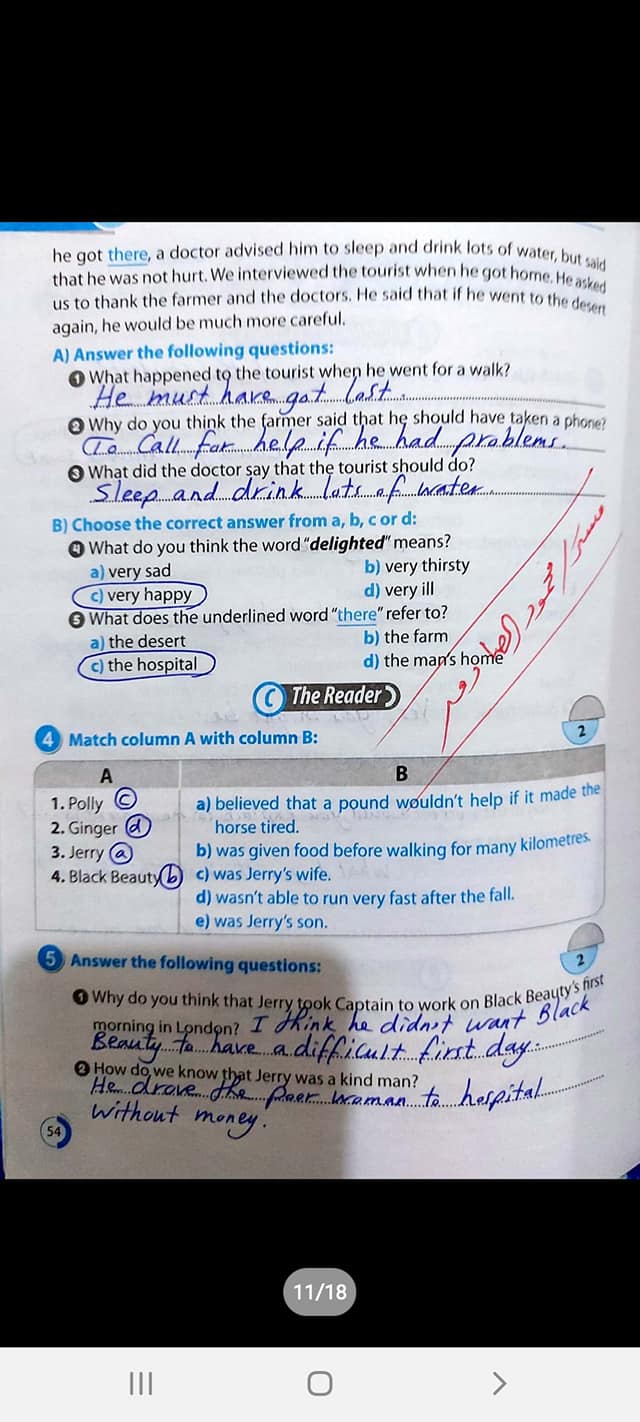 he got there, a doctor advised him to sleep and drink lots of water, but said
that he was not hurt. We interviewed the tourist when he got home. He asked
us to thank the farmer and the doctors. He said that if he went to the desert
again, he would be much more careful.
A) Answer the following questions:
1 What happened to the tourist when he went for a walk?
He must have got lost.
2 Why do you think the farmer said that he should have taken a phone?
To Call for help if he had problems.
3 What did the doctor say that the tourist should do?
Sleep and drink lots of water.
B) Choose the correct answer from a, b, c or d:
4 What do you think the word "delighted" means?
a) very sad b) very thirsty
c) very happy d) very ill
5 What does the underlined word "there" refer to?
a) the desert b) the farm
c) the hospital d) the man's home
C The Reader
4 Match column A with column B:
2
A B
1. Polly C a) believed that a pound wouldn't help if it made the
2. Ginger d horse tired.
3. Jerry a b) was given food before walking for many kilometres.
4. Black Beauty b c) was Jerry's wife.
d) wasn't able to run very fast after the fall.
e) was Jerry's son.
5 Answer the following questions:
2
1 Why do you think that Jerry took Captain to work on Black Beauty's first
morning in London? I think he didn't want Black
Beauty to have a difficult first day.
2 How do we know that Jerry was a kind man?
He drove the poor woman to hospital
without money.
54
11/18